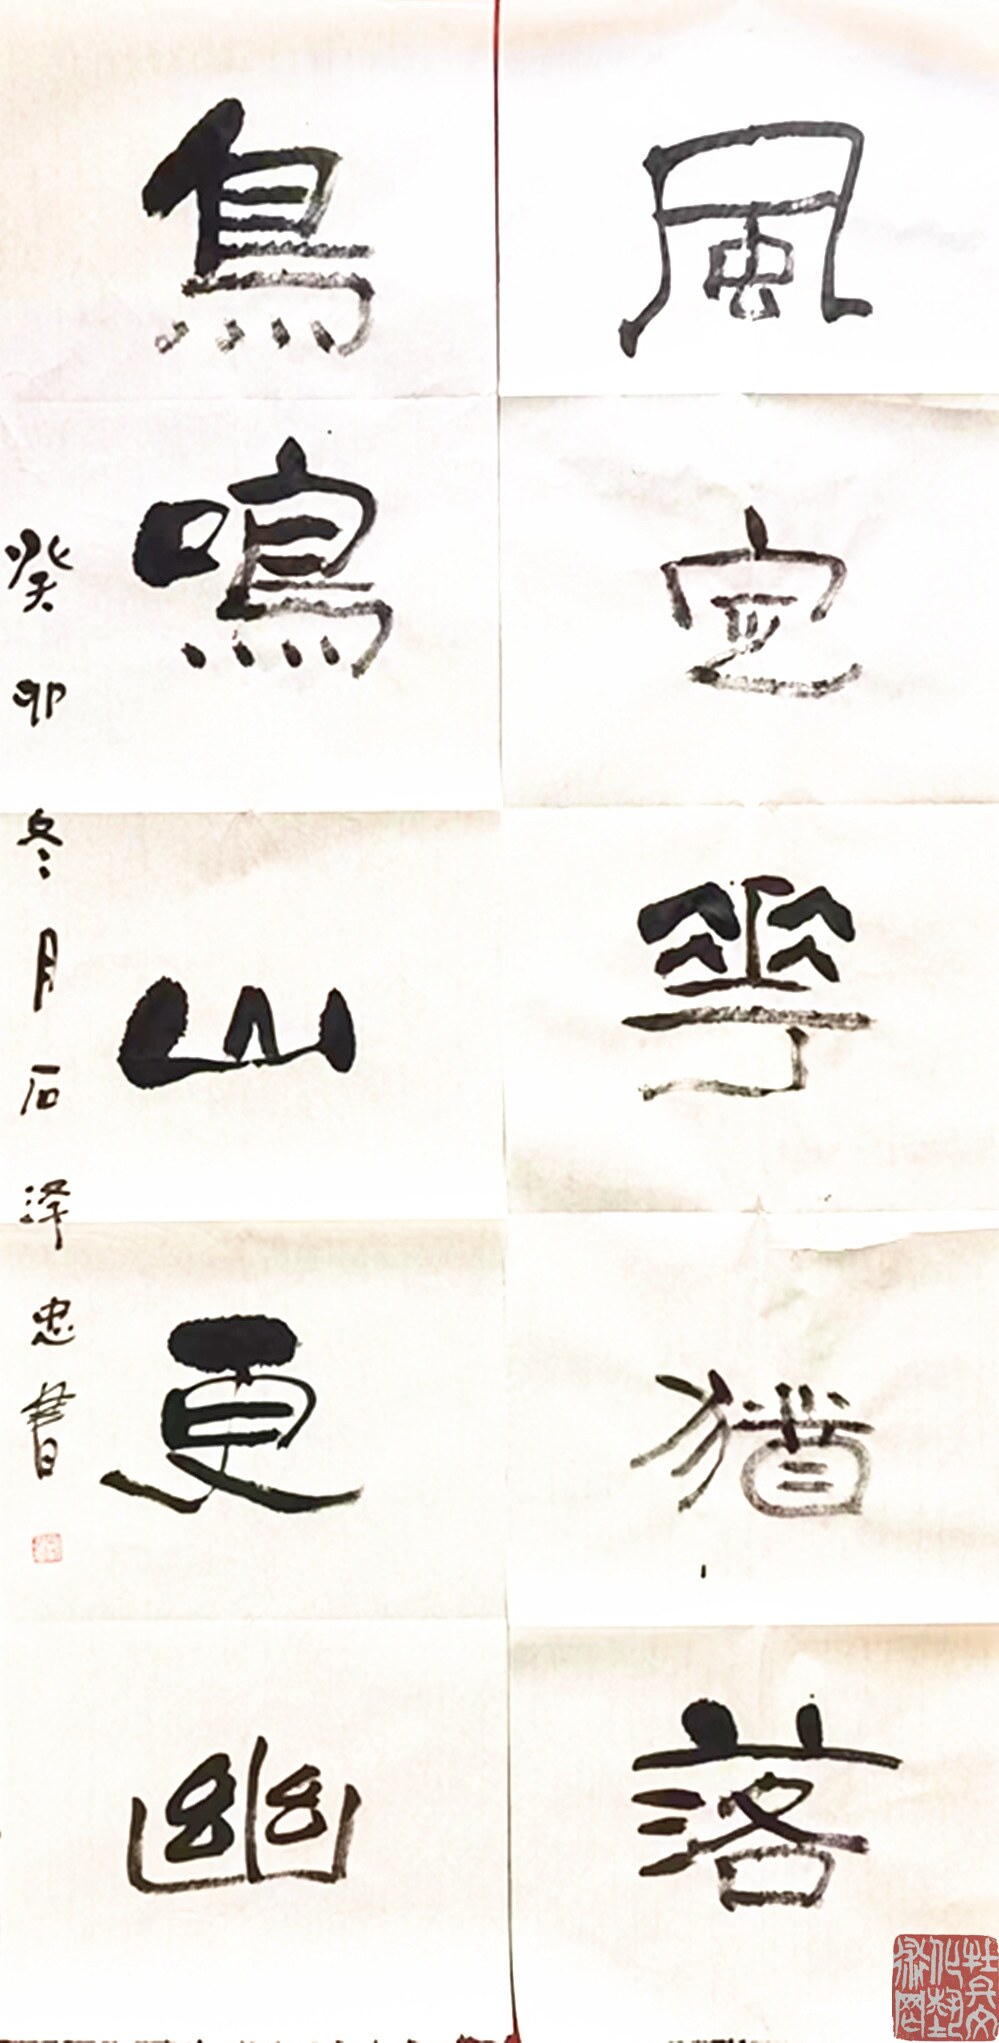 風定華猶落
鳥鳴山更幽
癸卯冬月石泽忠書